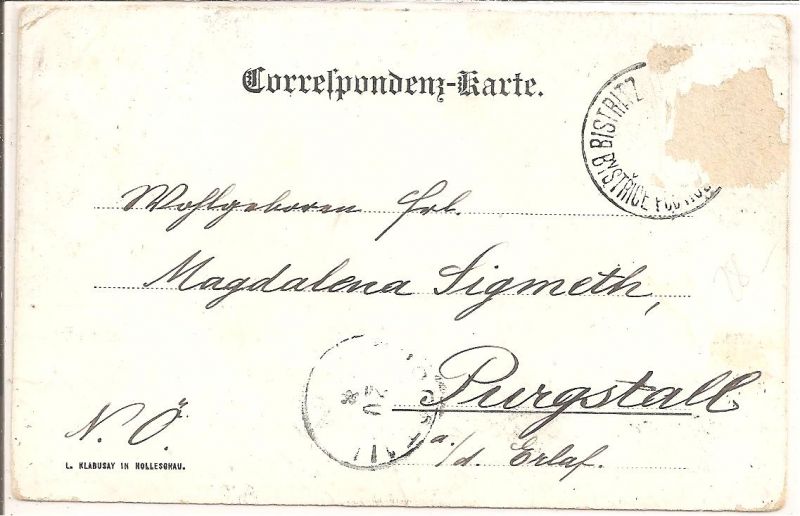 Correspondenz-Karte.
BISTRITZ
BYSTŘICE POD
Wohlgeboren Frl.
Magdalena Sigmeth,
Purgstall
a./d. Erlaf.
N. Ö.
L. KLABUSAY IN HOLLESCHAU.
28